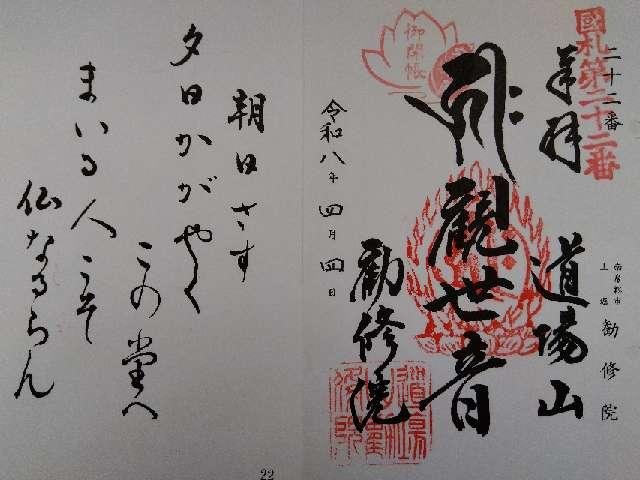 國札第二十二番
二十二番
奉拜
道場山
南房総市
上堀 勧修院
御開帳
觀世音
令和八年四月四日
勧修院
朝日さす
夕日かがやく
この堂へ
まいる人こそ
仏なるらん
22